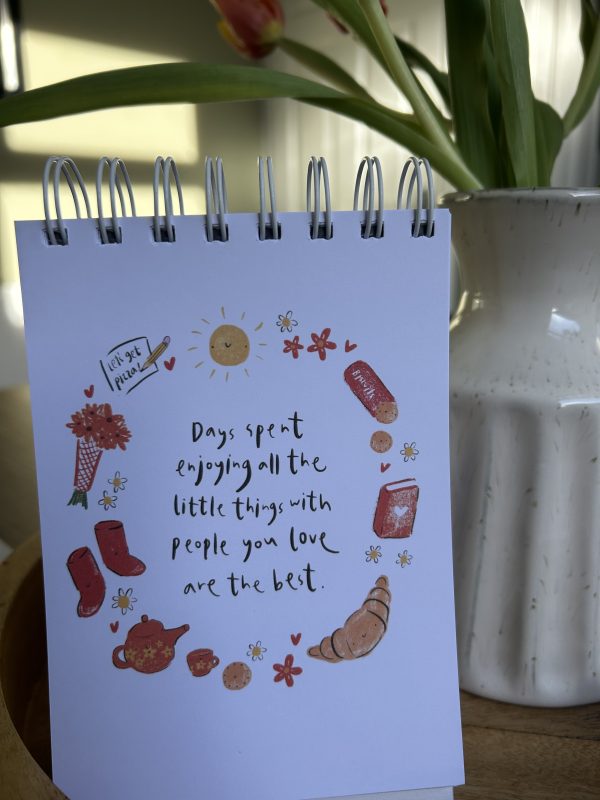 Let's get
pizza!
Days spent
enjoying all the
little things with
people you love
are the best.